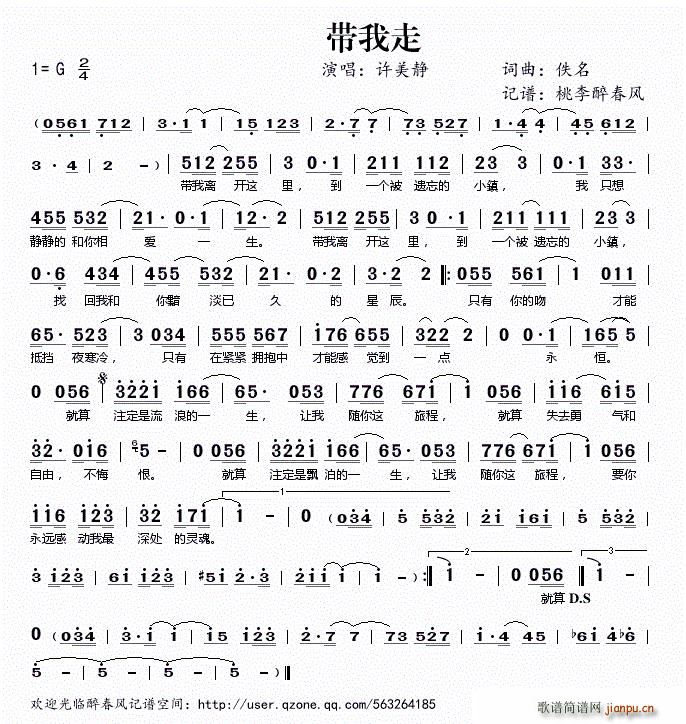 带我走
1= G 2/4 演唱：许美静 词曲：佚名
记谱：桃李醉春风
(0561 712 | 3·1 1 | 15 123 | 2·7 7 | 73 527 | 1·4 4 | 45 612
3 · 4 | 2 - ) | 512 255 | 3 0·1 | 211 211 | 23 3 | 0·1 33·
带我离 开这 里，到 一个被 遗忘的 小鎮， 我 只想
455 532 | 21· 0·1 | 12·2 | 512 255 | 3 0·1 | 211 211 | 23 3 |
静静的 和你相 爱 一 生。 带我离 开这 里，到 一个被 遗忘的 小鎮，
0·6 434 | 455 532 | 21· 0·1 | 3·2 2 |: 055 561 | 1 011 |
找 回我和 你黯 淡已 久 的 星 辰。 只有 你的吻 才能
65· 523 | 3 034 | 555 567 | 176 655 | 322 2 | 0 0 | 165 5 |
抵挡 夜寒冷， 只有 在紧紧 拥抱中 才能感 觉到 一 点 永 恒。
0 056 | 3221 166 | 65· 053 | 776 671 | 1 056 | 116 611 |
就算 注定是流 浪的一 生，让我 随你这 旅程， 就算 失去勇 气和
32· 016 | 5 - | 0 056 | 3221 166 | 65·053 | 776 671 | 1 056 |
自由，不悔 恨。 就算 注定是飘 泊的一 生，让我 随你这 旅程， 要你
1
116 123 | 32 171 | 1 - | 0 (034 | 5 532 | 21 161 | 5 532 |
永远感 动我最 深处 的灵魂。
2 3
3 123 | 61 123 | #51 2·3 | 211 1 | 1 - ) :| 1 - | 0 056 :| 1 - |
就算 D.S
0 (034 | 3·1 1 | 15 123 | 2·7 7 | 73 527 | 1·4 4 | b61 4b6 |
5 - | 5 - | 5 - | 5 - )‖
欢迎光临醉春风记谱空间：http://user.qzone.qq.com/563264185
歌谱简谱网
jianpu.cn